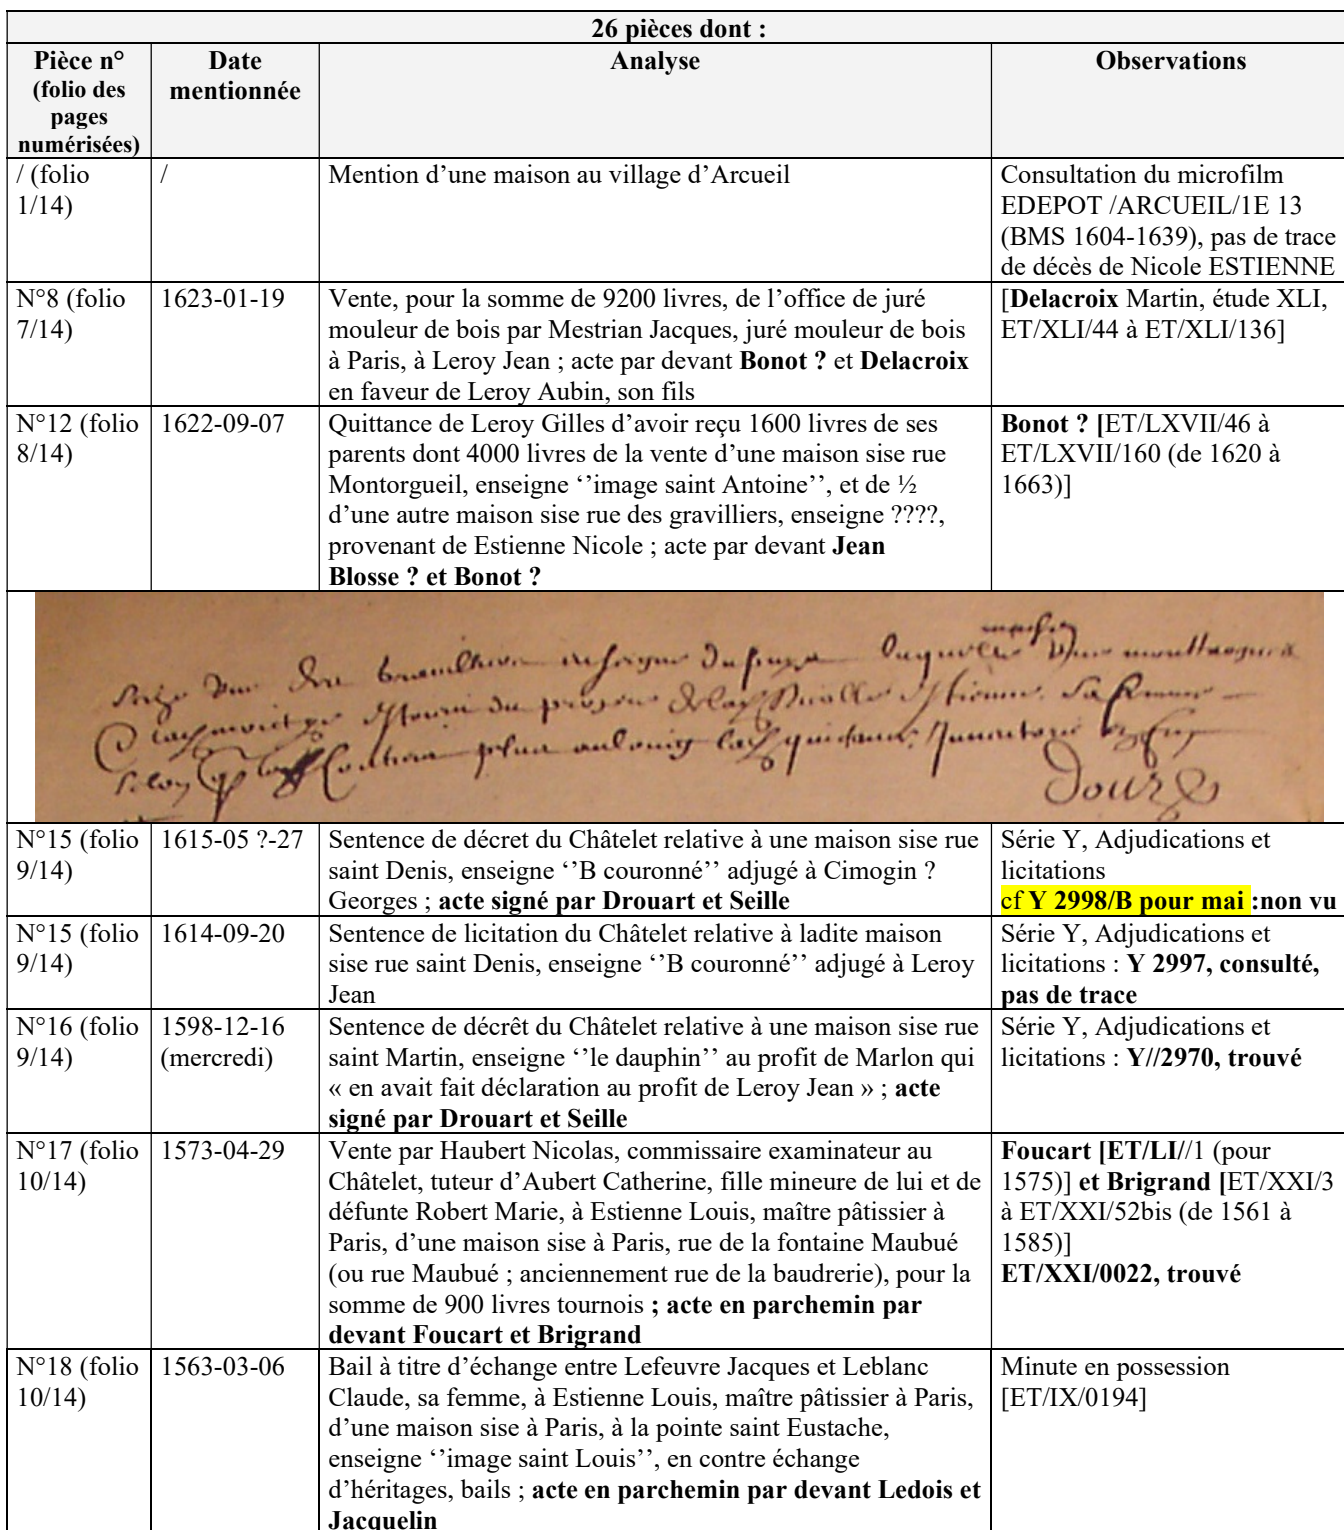 26 pièces dont :
Pièce n°
(folio des
pages
numérisées)
Date
mentionnée
Analyse
Observations
/ (folio
1/14)
/
Mention d’une maison au village d’Arcueil
Consultation du microfilm
EDEPOT /ARCUEIL/1E 13
(BMS 1604-1639), pas de trace
de décès de Nicole ESTIENNE
N°8 (folio
7/14)
1623-01-19
Vente, pour la somme de 9200 livres, de l’office de juré
mouleur de bois par Mestrian Jacques, juré mouleur de bois
à Paris, à Leroy Jean ; acte par devant Bonot ? et Delacroix
en faveur de Leroy Aubin, son fils
[Delacroix Martin, étude XLI,
ET/XLI/44 à ET/XLI/136]
N°12 (folio
8/14)
1622-09-07
Quittance de Leroy Gilles d’avoir reçu 1600 livres de ses
parents dont 4000 livres de la vente d’une maison sise rue
Montorgueil, enseigne ‘’image saint Antoine’’, et de ½
d’une autre maison sise rue des gravilliers, enseigne ????,
provenant de Estienne Nicole ; acte par devant Jean
Blosse ? et Bonot ?
Bonot ? [ET/LXVII/46 à
ET/LXVII/160 (de 1620 à
1663)]
enseigne
sa femme
quittance Inventorié
Douze
N°15 (folio
9/14)
1615-05 ?-27
Sentence de décret du Châtelet relative à une maison sise rue
saint Denis, enseigne ‘’B couronné’’ adjugé à Cimogin ?
Georges ; acte signé par Drouart et Seille
Série Y, Adjudications et
licitations
cf Y 2998/B pour mai :non vu
N°15 (folio
9/14)
1614-09-20
Sentence de licitation du Châtelet relative à ladite maison
sise rue saint Denis, enseigne ‘’B couronné’’ adjugé à Leroy
Jean
Série Y, Adjudications et
licitations : Y 2997, consulté,
pas de trace
N°16 (folio
9/14)
1598-12-16
(mercredi)
Sentence de décrêt du Châtelet relative à une maison sise rue
saint Martin, enseigne ‘’le dauphin’’ au profit de Marlon qui
« en avait fait déclaration au profit de Leroy Jean » ; acte
signé par Drouart et Seille
Série Y, Adjudications et
licitations : Y//2970, trouvé
N°17 (folio
10/14)
1573-04-29
Vente par Haubert Nicolas, commissaire examinateur au
Châtelet, tuteur d’Aubert Catherine, fille mineure de lui et de
défunte Robert Marie, à Estienne Louis, maître pâtissier à
Paris, d’une maison sise à Paris, rue de la fontaine Maubué
(ou rue Maubué ; anciennement rue de la baudrerie), pour la
somme de 900 livres tournois ; acte en parchemin par
devant Foucart et Brigrand
Foucart [ET/LI//1 (pour
1575)] et Brigrand [ET/XXI/3
à ET/XXI/52bis (de 1561 à
1585)]
ET/XXI/0022, trouvé
N°18 (folio
10/14)
1563-03-06
Bail à titre d’échange entre Lefeuvre Jacques et Leblanc
Claude, sa femme, à Estienne Louis, maître pâtissier à Paris,
d’une maison sise à Paris, à la pointe saint Eustache,
enseigne ‘’image saint Louis’’, en contre échange
d’héritages, bails ; acte en parchemin par devant Ledois et
Jacquelin
Minute en possession
[ET/IX/0194]